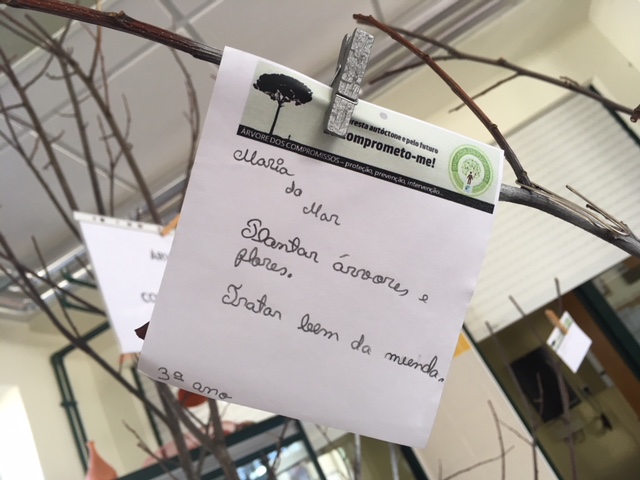 resta autóctone e pelo futuro
omprometo-me!
ÁRVORE DOS COMPROMISSOS – proteção, prevenção, intervenção...
Maria
do Mar
Plantar árvores e
flores.
Tratar bem da meunda.
3º ano